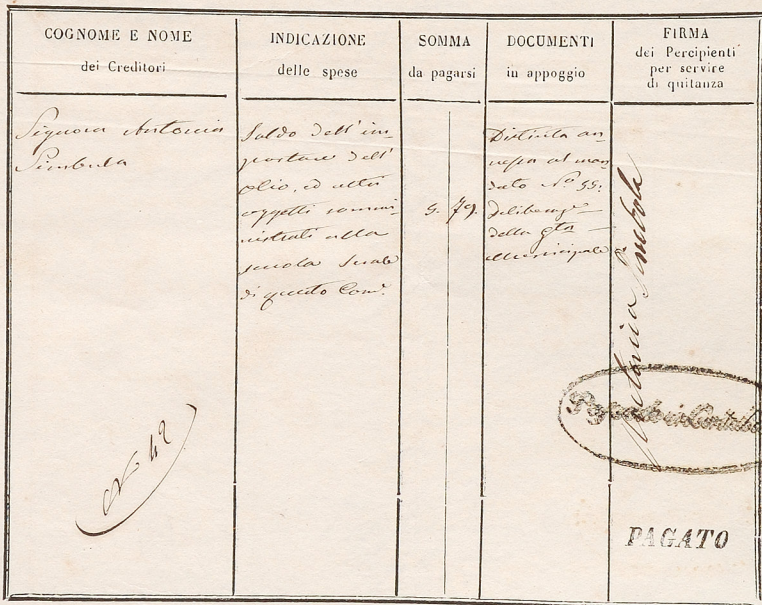 COGNOME E NOME
dei Creditori
INDICAZIONE
delle spese
SOMMA
da pagarsi
DOCUMENTI
in appoggio
FIRMA
dei Percipienti
per servire
di quitanza
Signora Antonia
Simbula
Saldo dell' im-
portare dell'
olio, ed altri
oggetti sommi-
nistrati alla
scuola Serale
di questo Com.e
9. 79.
Distinta an-
nessa al man-
dato N.o 55:
della Gta
Municipale
Antonia Simbola
N. 42
Pagato in Contabili
PAGATO